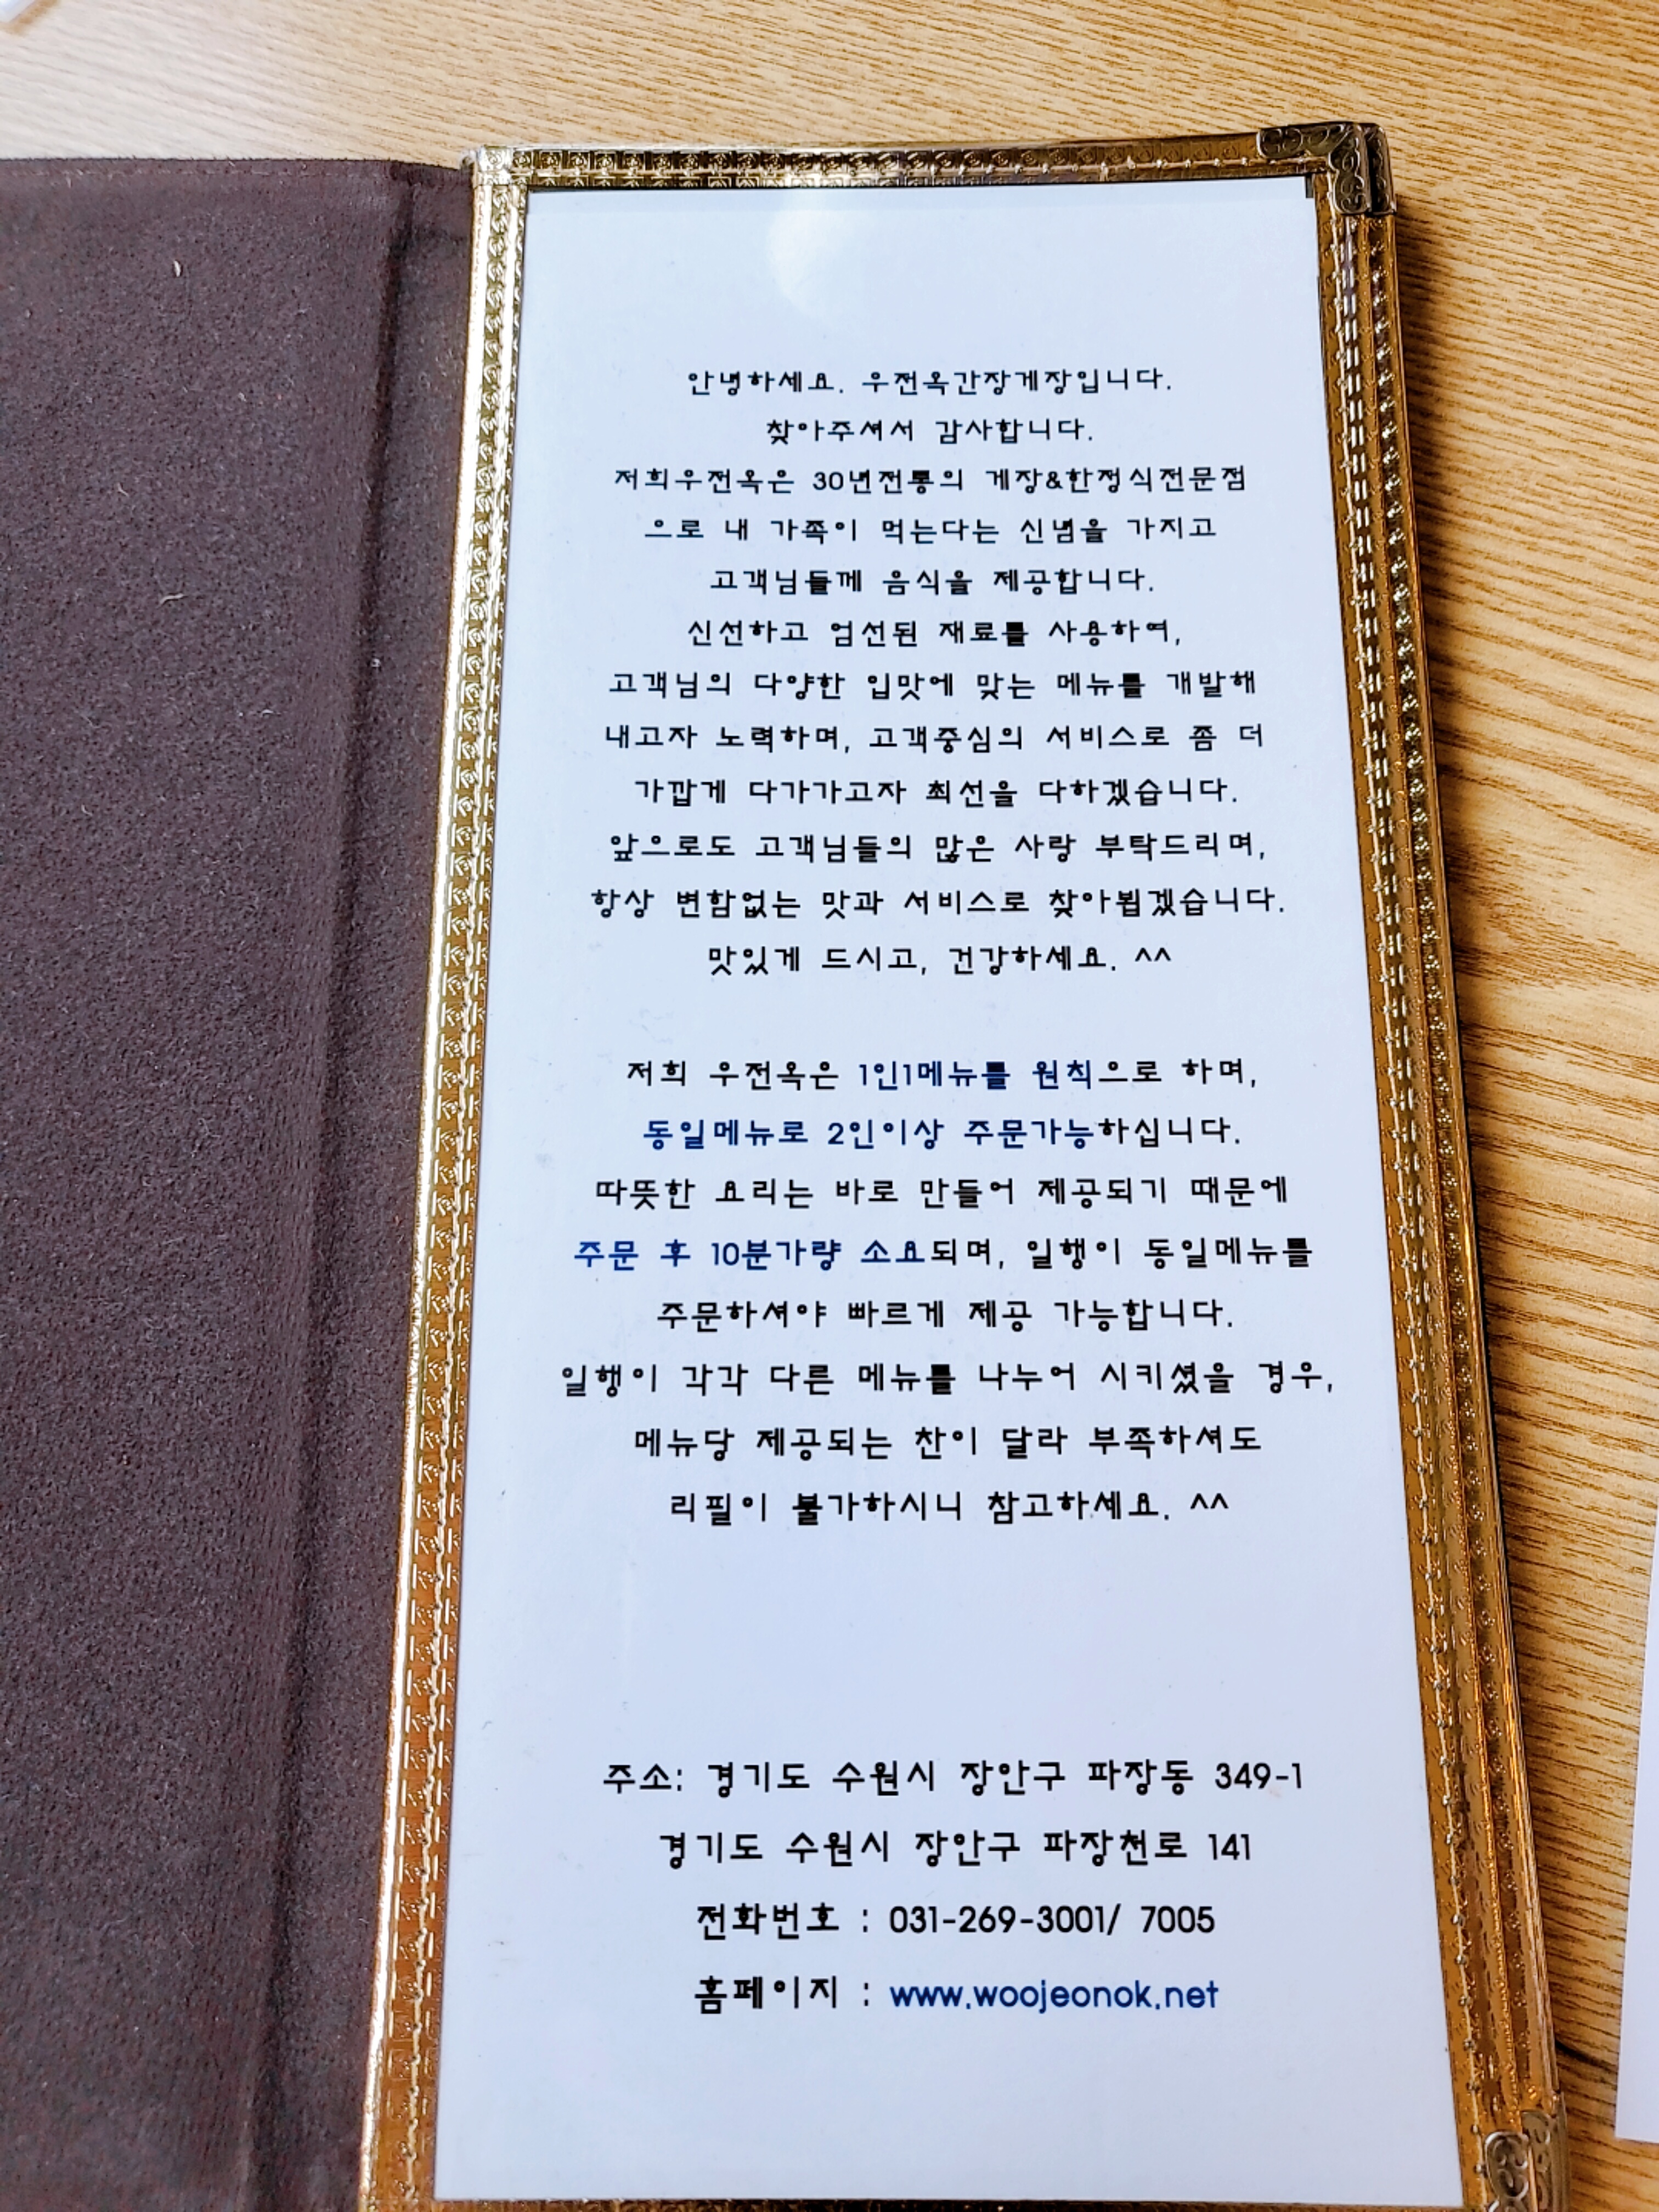 안녕하세요. 우전옥간장게장입니다.
찾아주셔서 감사합니다.
저희우전옥은 30년전통의 게장&한정식전문점
으로 내 가족이 먹는다는 신념을 가지고
고객님들께 음식을 제공합니다.
신선하고 엄선된 재료를 사용하여,
고객님의 다양한 입맛에 맞는 메뉴를 개발해
내고자 노력하며, 고객중심의 서비스로 좀 더
가깝게 다가가고자 최선을 다하겠습니다.
앞으로도 고객님들의 많은 사랑 부탁드리며,
항상 변함없는 맛과 서비스로 찾아뵙겠습니다.
맛있게 드시고, 건강하세요. ^^
저희 우전옥은 1인1메뉴를 원칙으로 하며,
동일메뉴로 2인이상 주문가능하십니다.
따뜻한 요리는 바로 만들어 제공되기 때문에
주문 후 10분가량 소요되며, 일행이 동일메뉴를
주문하셔야 빠르게 제공 가능합니다.
일행이 각각 다른 메뉴를 나누어 시키셨을 경우,
메뉴당 제공되는 찬이 달라 부족하셔도
리필이 불가하시니 참고하세요. ^^
주소: 경기도 수원시 장안구 파장동 349-1
경기도 수원시 장안구 파장천로 141
전화번호 : 031-269-3001/ 7005
홈페이지 : www.woojeonok.net